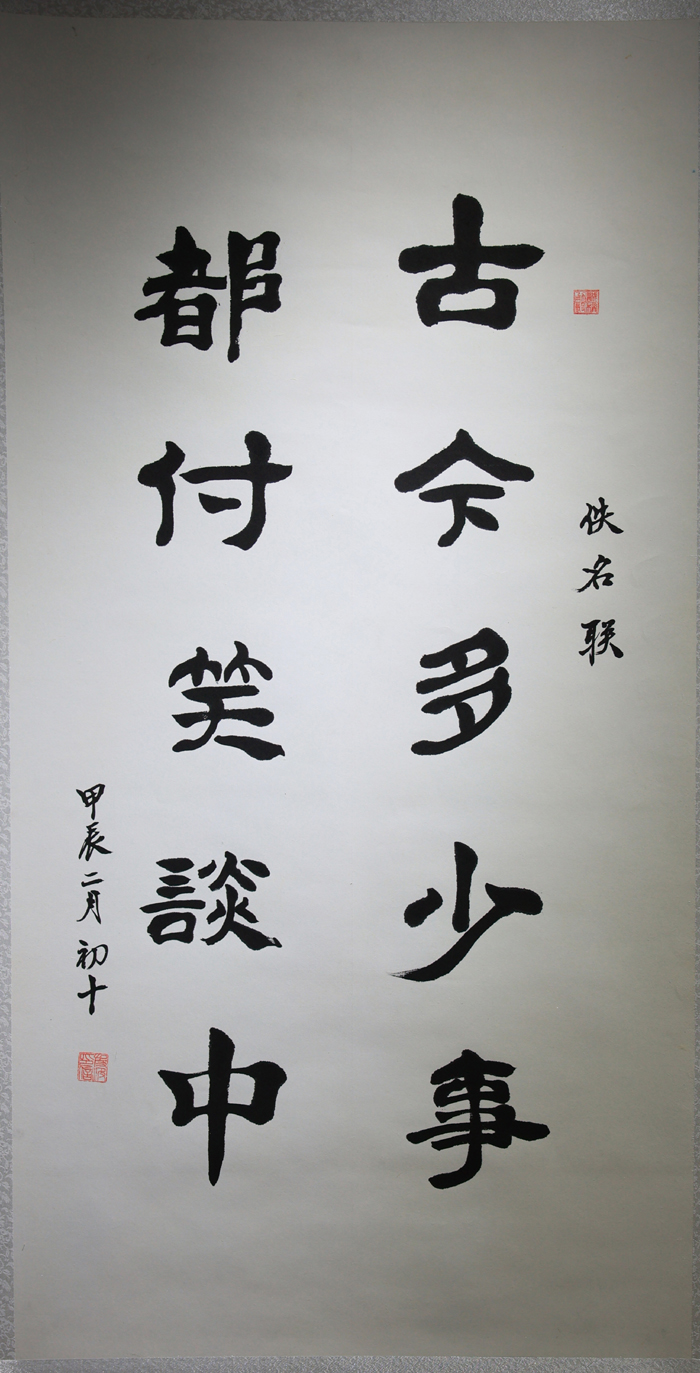 佚名联
古今多少事
都付笑談中
甲辰二月初十